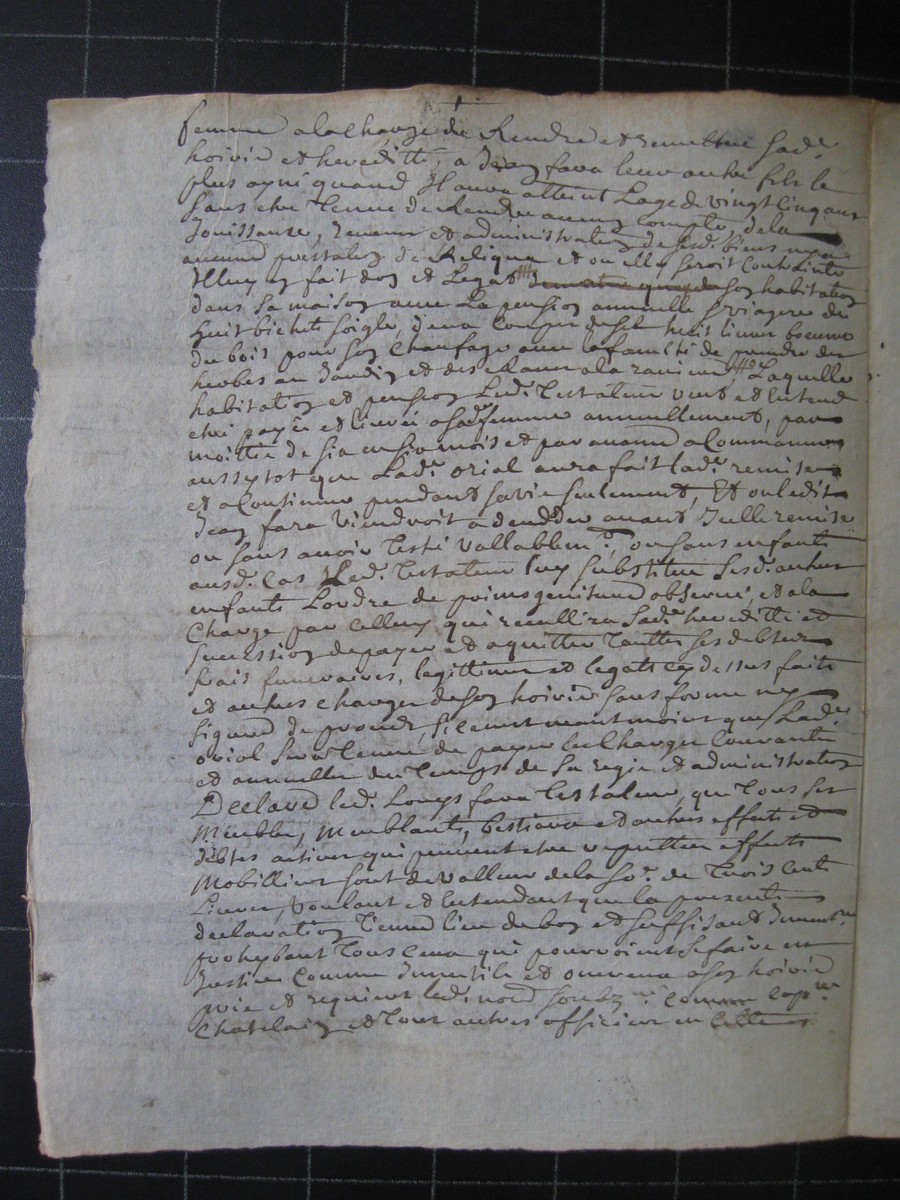 femme a la charge de Rendre et remettre sad.e
hoirie et hereditté, a Jean fara leur autre fils le
plus ayné quand Il aura atteint Lage de vingt cinq ans
sans etre tenue de Rendre aucung compte, de la
Jouissance, revenu et administration de sesd. biens ny a
aucune prestation de Reliqua et ou elle seroit
Il luy en fait don et Legat son habitation
dans sa maison avec La pension annuelle & viagere de
huit bichets soigle, de sel huit livres
du bois pour son chaufage avec la faculté de prendre des
herbes au Jardin et des Raves a la raviere, Laquelle
habitation et pension Led. Testateur veut et Entend
etre payée et livrée a sad. femme annuellement, par
moittié de six en six mois et par avance a Commancer
aussytot que Lad. orial aura fait lad. remise
et a Continuer pendant sa vie seulement, Et ou ledit
Jean fara viendroit a decedder avant Jcelle remise
ou sans avoir testé vallablem.t, ou sans enfants
ausd. Cas Led. Testateur luy substitue sesd. autres
enfants Lordre de primogeniture observé, et a la
Charge par celluy qui recuillira sad. heredittè et
succession de payer et aquitter touttes ses debtes
frais funeraires, legittimes et legats cy dessus faits
et autres charges de son hoirie sans forme ny
figure de proces, sera neantmoins que Lad.
orial sera tenue de payer les Charges Courante
et annuelles du temps de sa regie et administration
Declare led. Louys fara testateur, que tous ses
Meubles, Meublants, bestiaux et autres effects et
debtes actives qui peuvent etre reputtes effects
Mobilliers sont de valleur de la So.e de trois Cent
Livres, voulant et Entendant que la presente
declaration tienne lieu de bon et suffisant Jnvent.re
prohybant tous Ceux qui pourroient se faire en
Justice Comme Jnuttile et onereux a son hoirie
prie et requiert led. not.e soubz.né Comme cap.ne
Chatelain et tous autres officiers